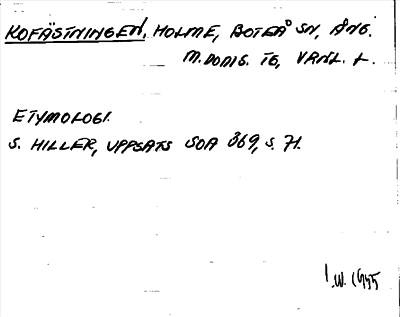 KOFÄSTNINGEN, HOLME, BOTEÅ SN, ÅNG.
M.DOMS. TG, VRNL. L.
ETYMOLOGI.
S. HILLER, UPPSATS SOA 369, S. 71.
I.W. 1955